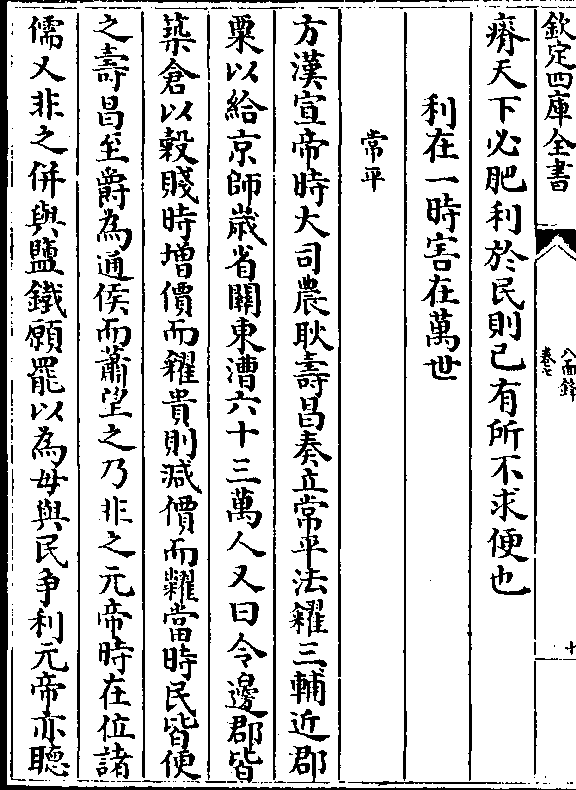 欽定四庫全書
八面鋒
卷七
十
瘠天下必肥利於民則已有所不求便也
利在一時害在萬世
常平
方漢宣帝時大司農耿壽昌奏立常平法糴三輔近郡
粟以給京師歲省關東漕六十三萬人又曰令邊郡皆
築倉以穀賤時增價而糴貴則減價而糶當時民皆便
之壽昌至爵為通侯而蕭望之乃非之元帝時在位諸
儒又非之併與鹽鐵願罷以為毋與民爭利元帝亦聽